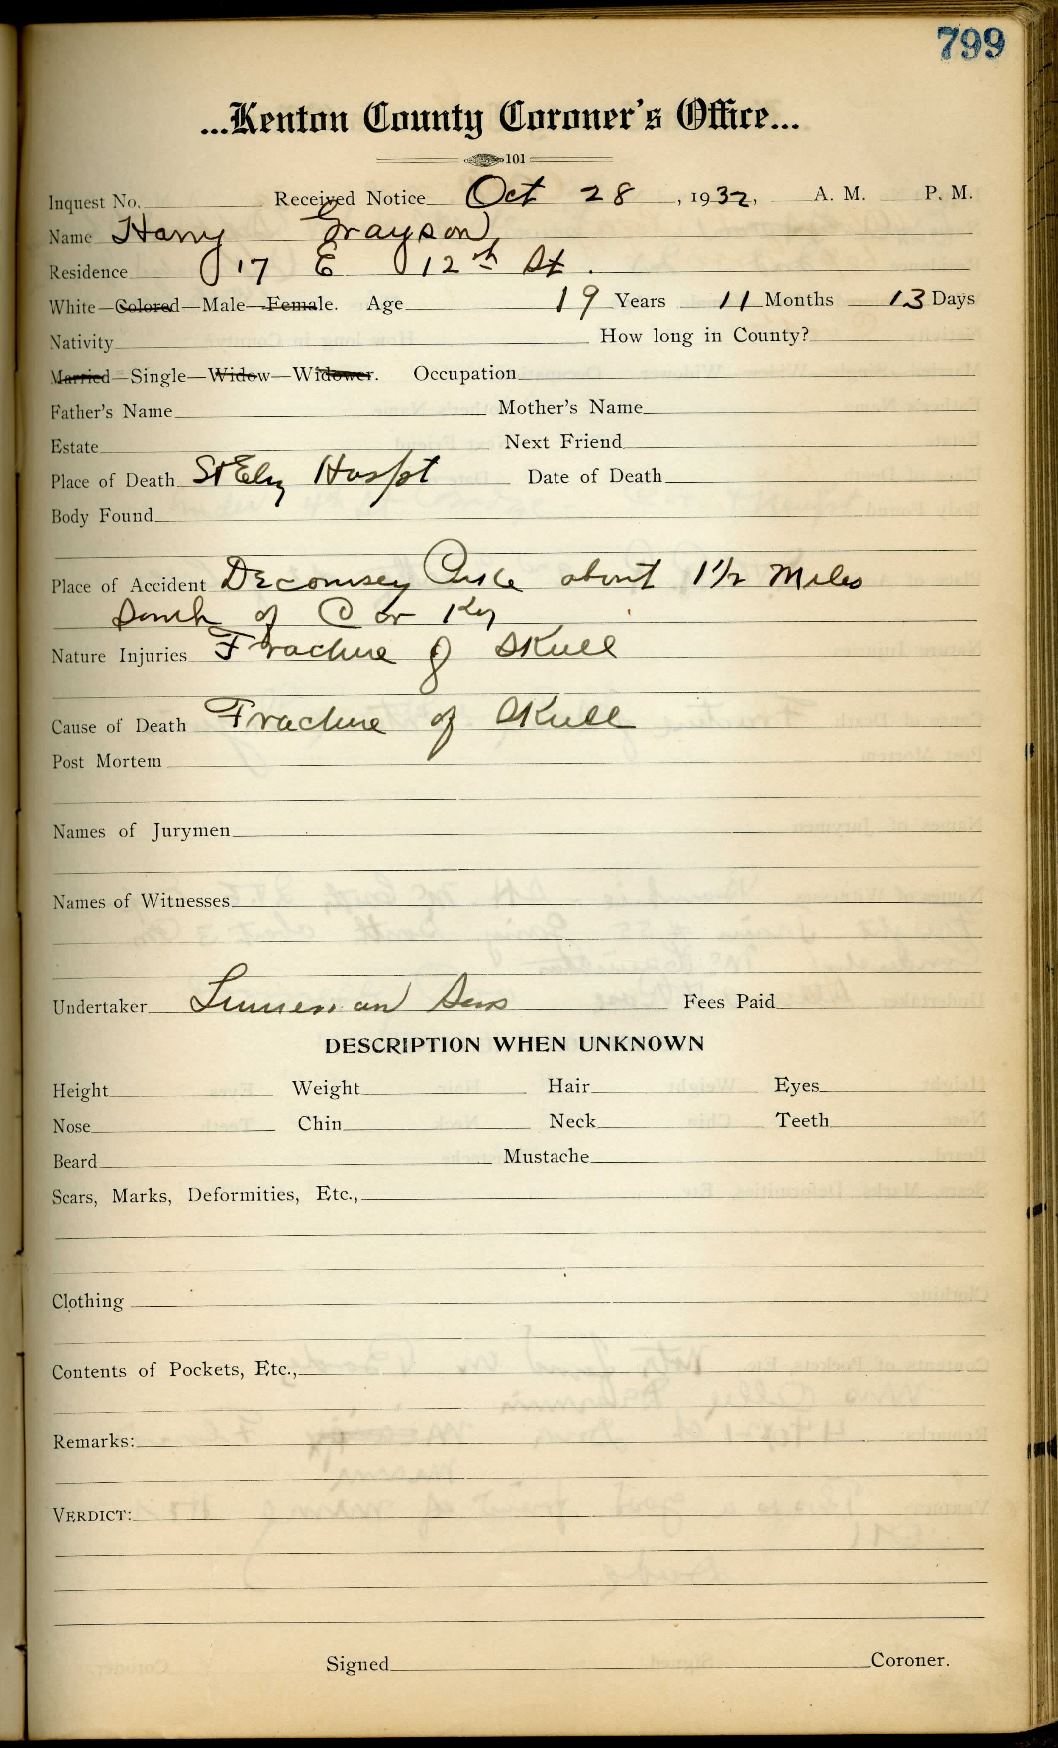 799
...Kenton County Coroner's Office...
101
Inquest No. Received Notice Oct 28, 1932, A. M. P. M.
Name Harry Grayson
Residence 17 E 12th St.
White—Colored—Male—Female. Age 19 Years 11 Months 13 Days
Nativity How long in County?
Married—Single—Widow—Widower. Occupation
Father's Name Mother's Name
Estate Next Friend
Place of Death St Eliz Hospt Date of Death
Body Found
Place of Accident Decoursey about 1 1/2 Miles
South of Cov Ky
Nature Injuries Fracture of Skull
Cause of Death Fracture of Skull
Post Mortem
Names of Jurymen
Names of Witnesses
Undertaker Sons Fees Paid
DESCRIPTION WHEN UNKNOWN
Height Weight Hair Eyes
Nose Chin Neck Teeth
Beard Mustache
Scars, Marks, Deformities, Etc.,
Clothing
Contents of Pockets, Etc.,
Remarks:
VERDICT:
Signed Coroner.